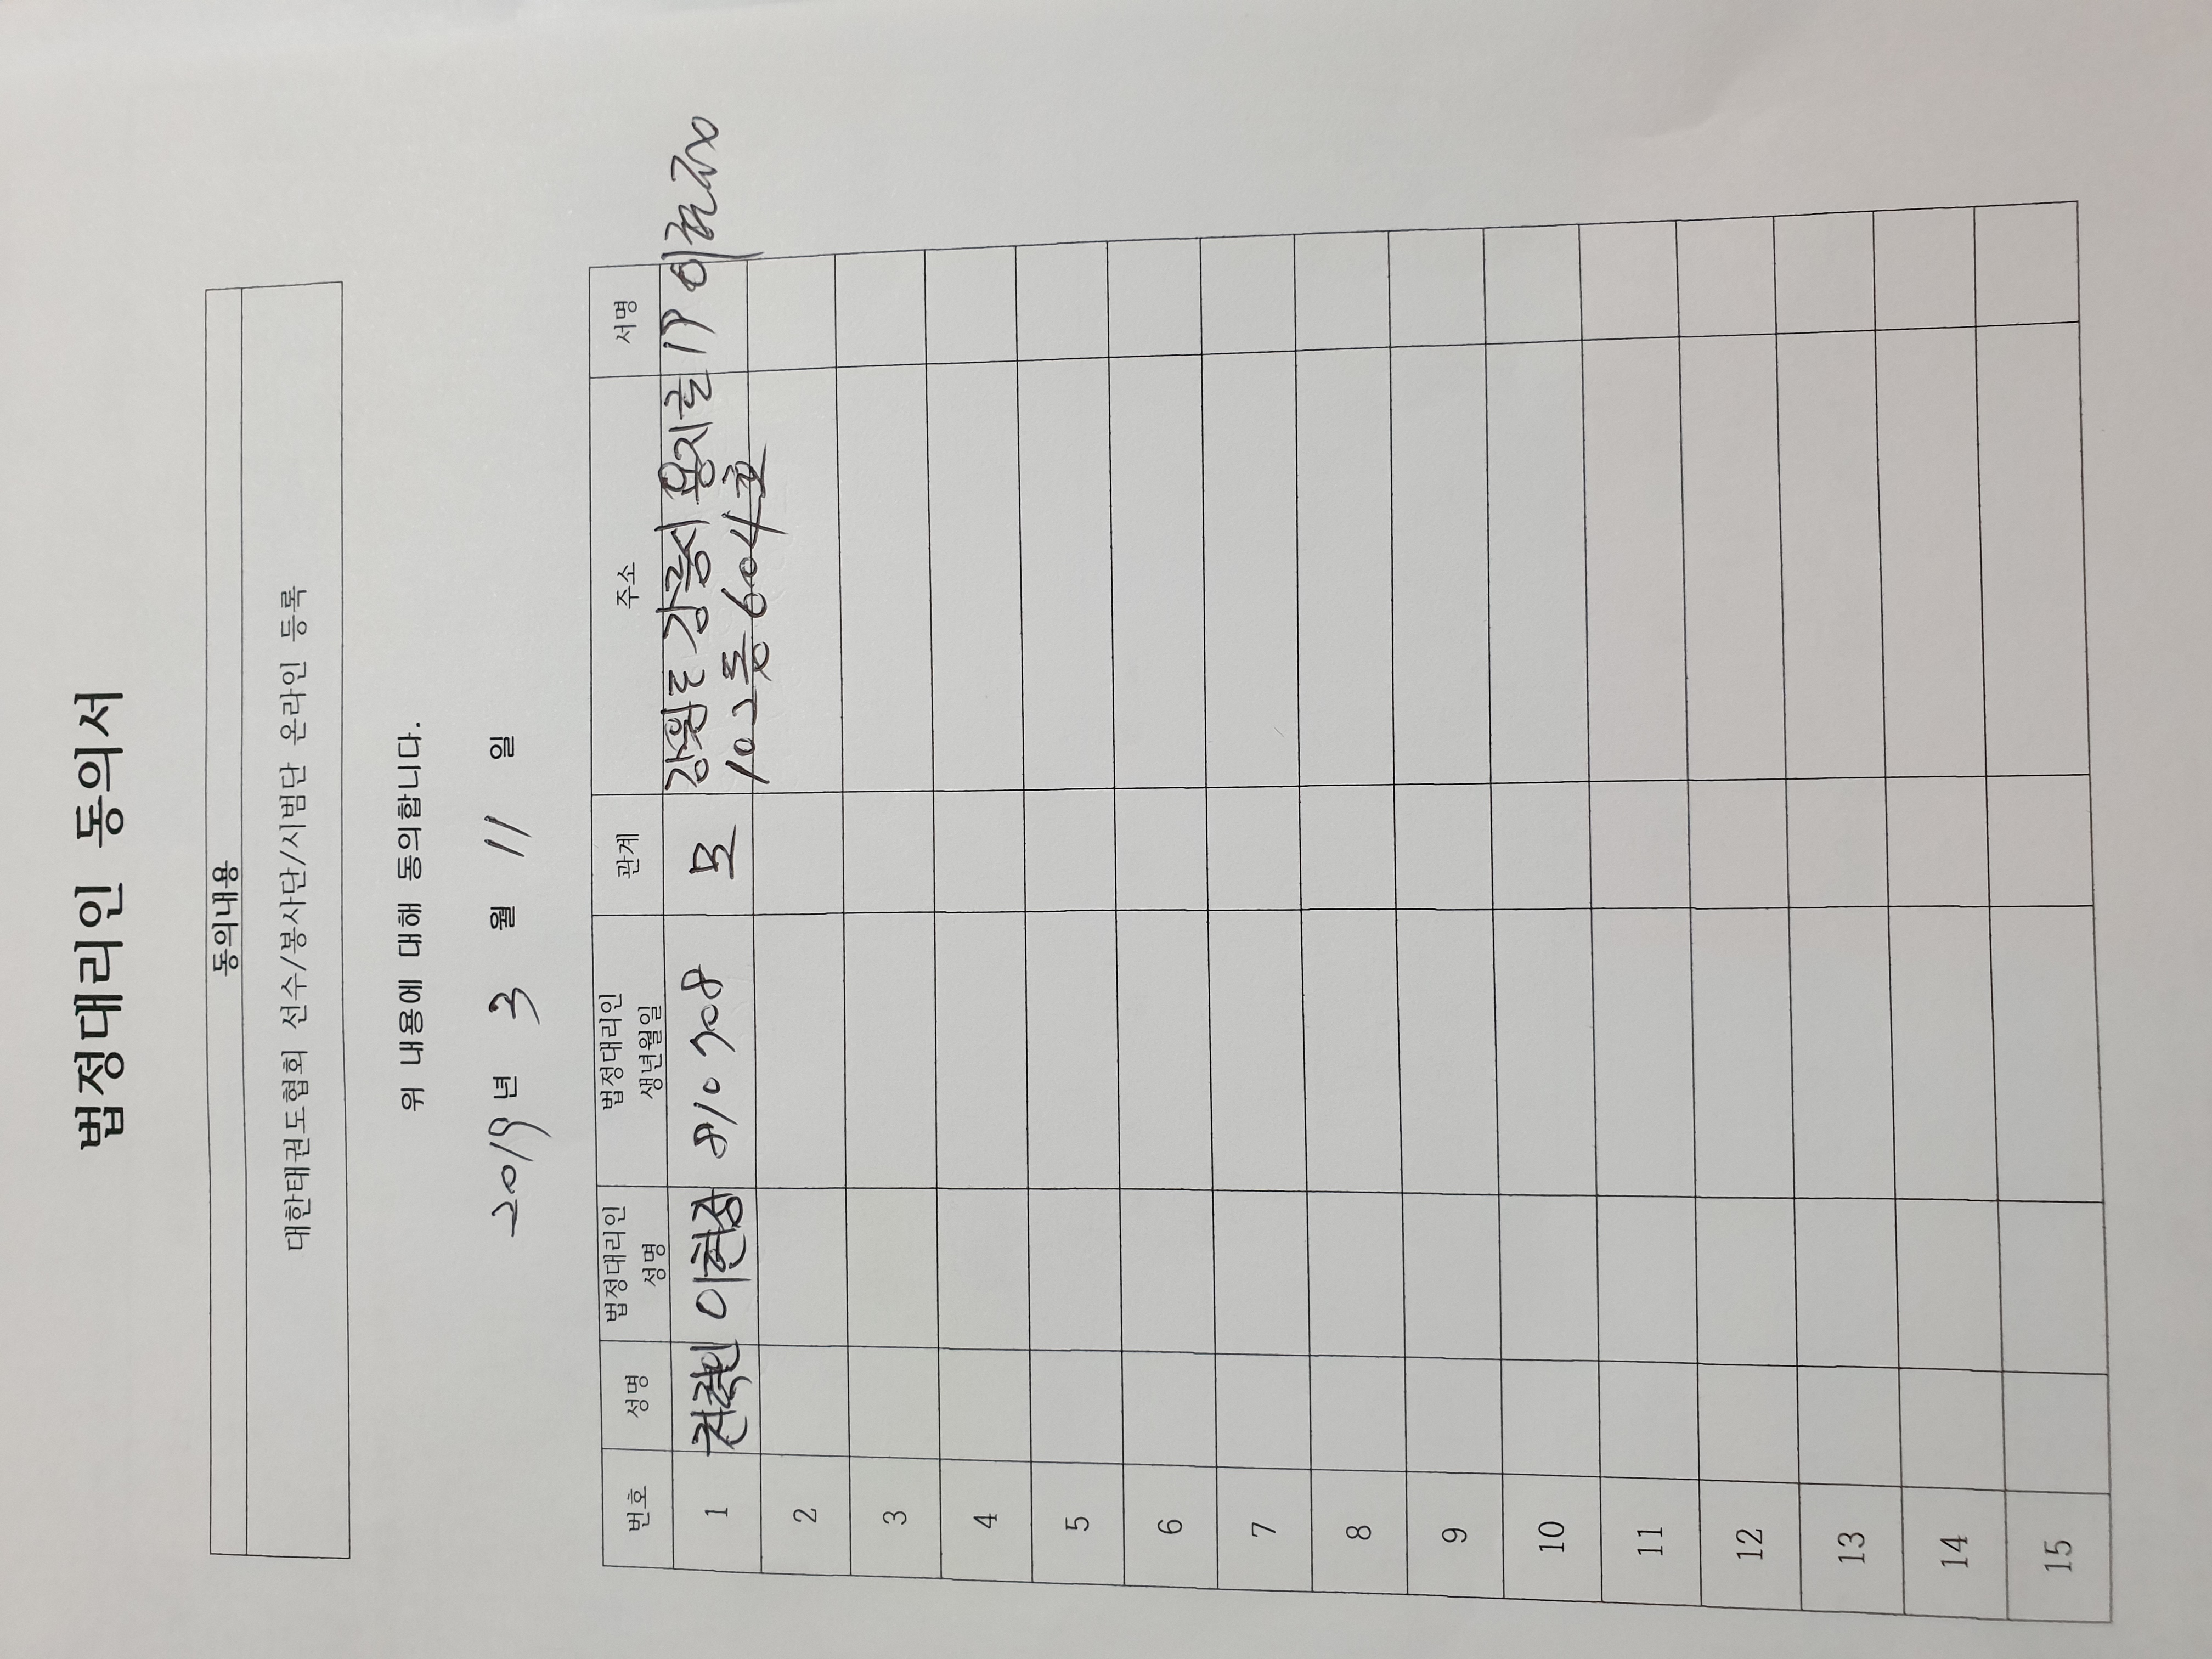 법정대리인 동의서
동의내용
대한태권도협회 선수/봉사단/시범단 온라인 등록
위 내용에 대해 동의합니다.
2019년 3 월 11 일
번호 성명 법정대리인 성명 법정대리인 생년월일 관계 주소 서명
1 이현정 810708 모 강원도 강릉시 용지로 19
102동 604호
2
3
4
5
6
7
8
9
10
11
12
13
14
15